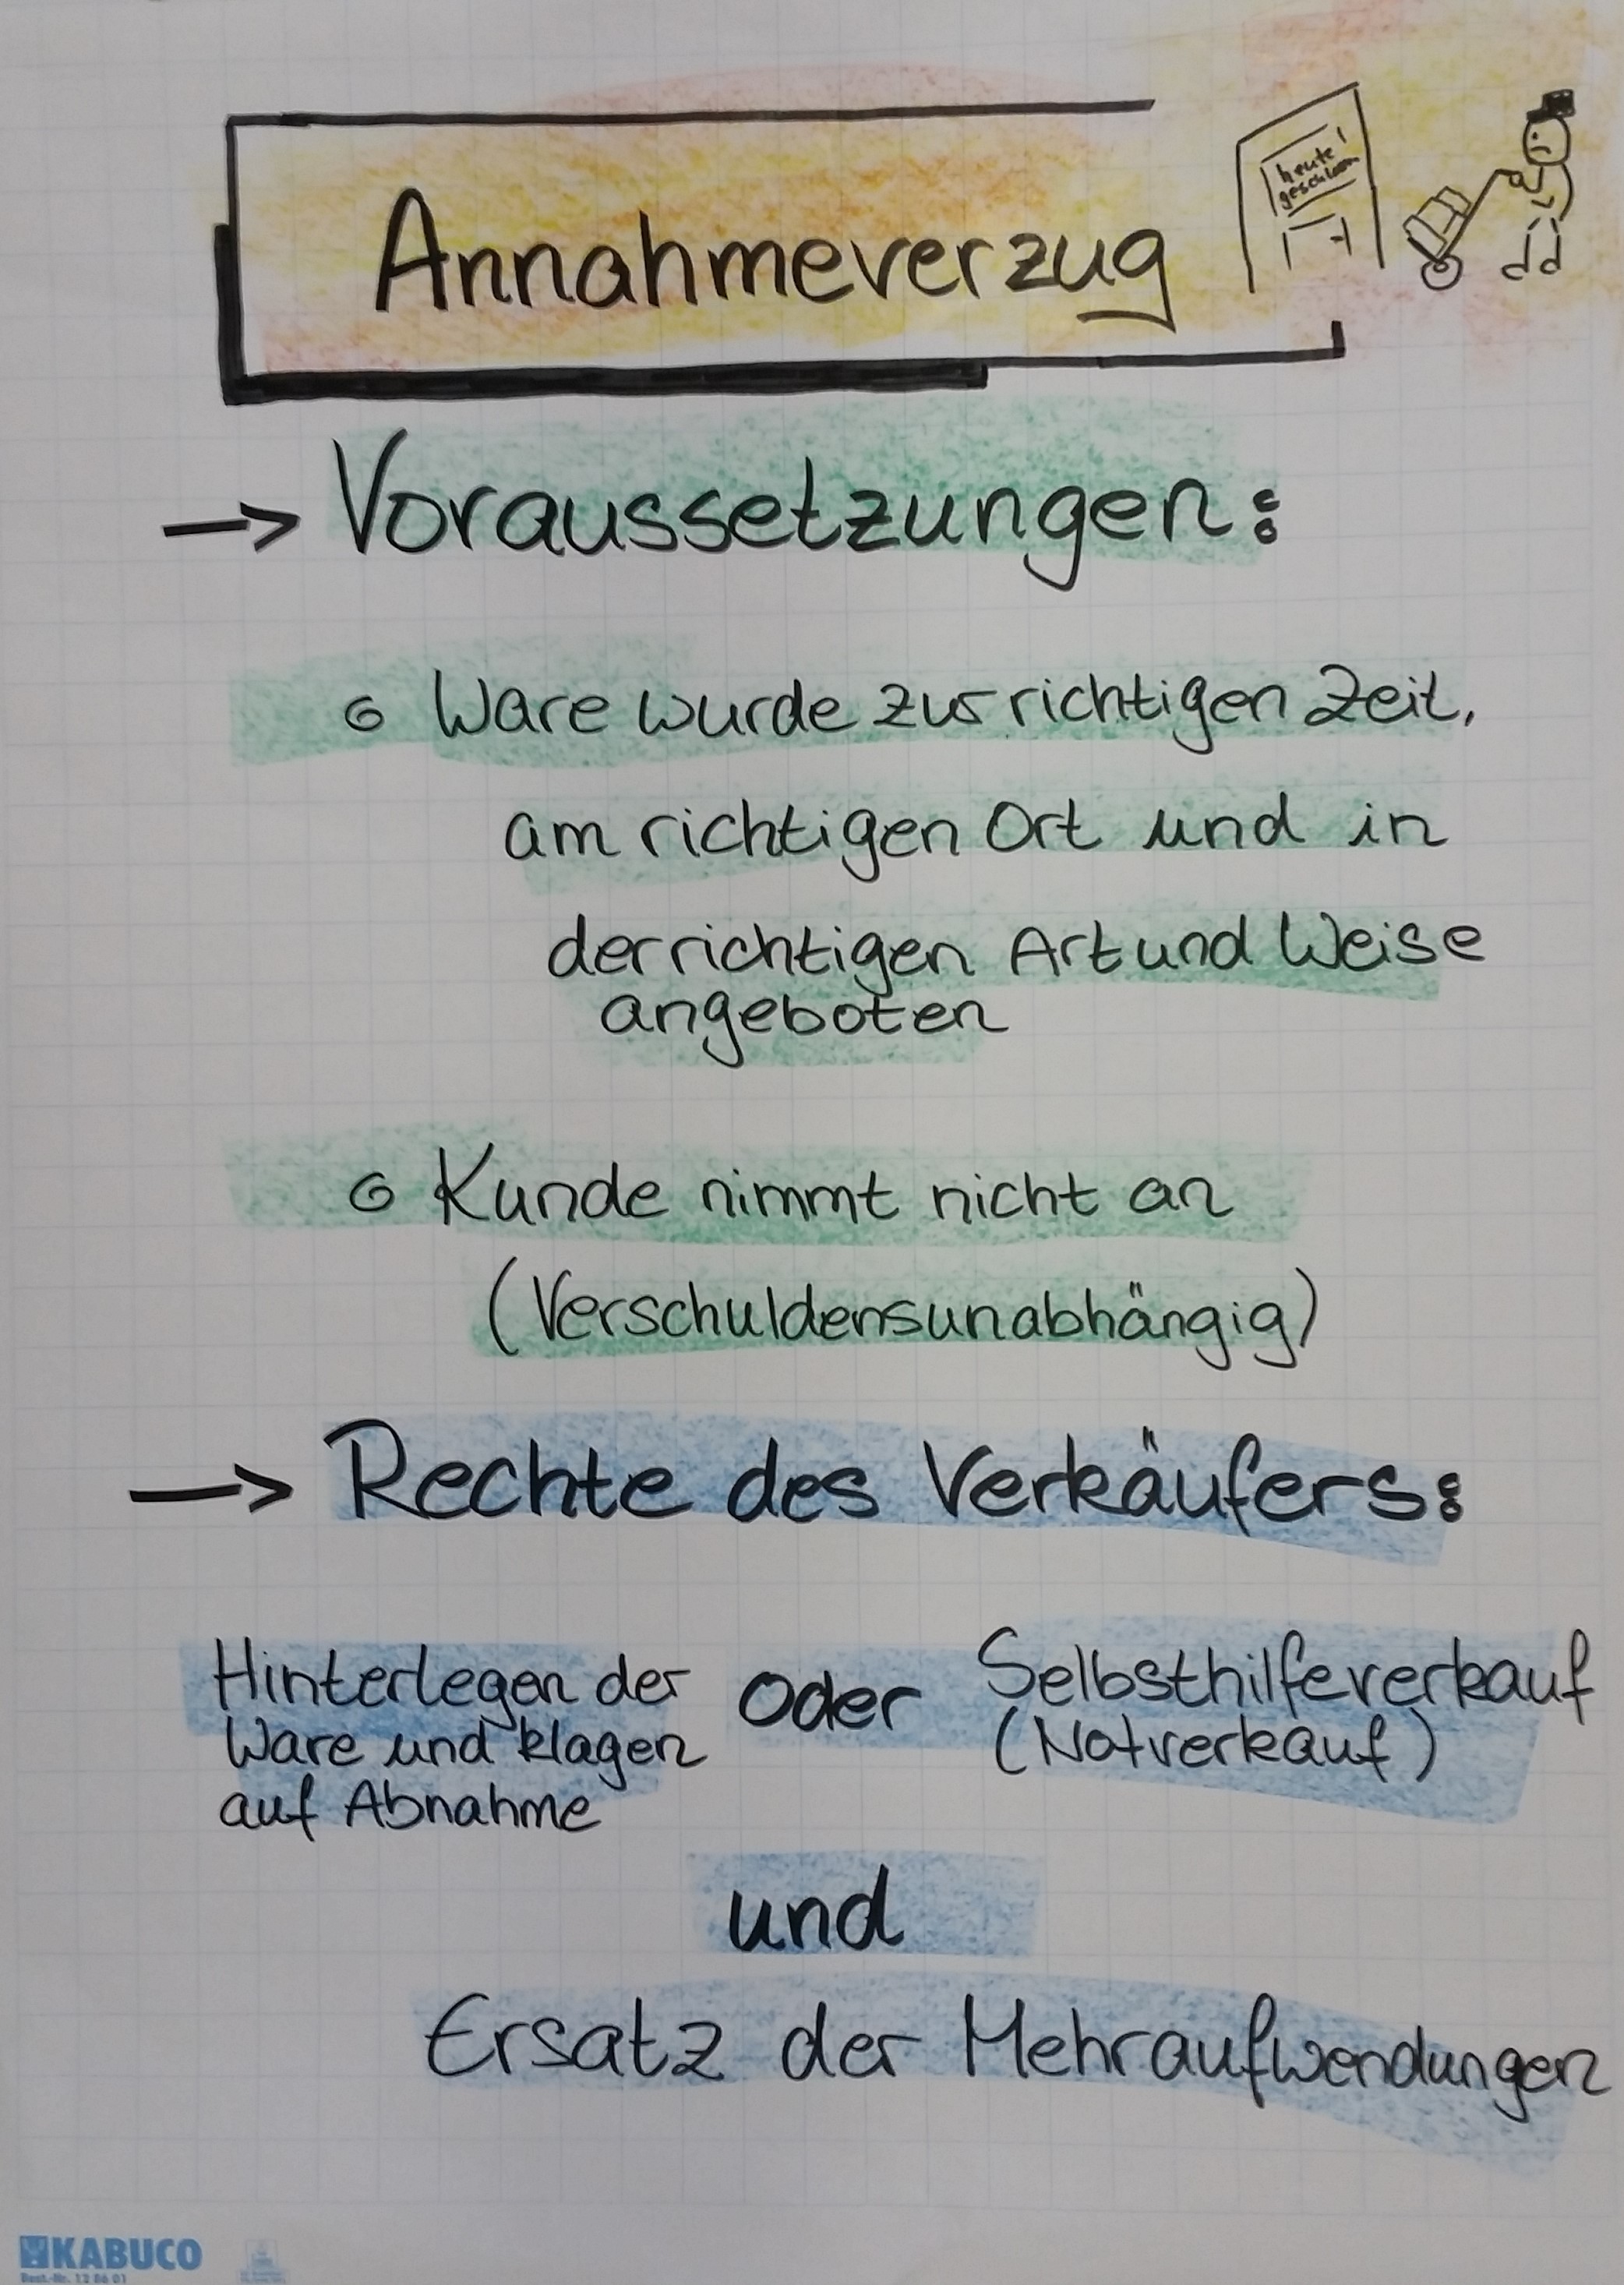 Annahmeverzug
heute
geschlossen
→ Voraussetzungen:
Ware wurde zur richtigen Zeit,
am richtigen Ort und in
der richtigen Art und Weise
angeboten
Kunde nimmt nicht an
(Verschuldensunabhängig)
→ Rechte des Verkäufers:
Hinterlegen der
Ware und klagen
auf Abnahme
oder
Selbsthilfeverkauf
(Notverkauf)
und
Ersatz der Mehraufwendungen
KABUCO
Best.-Nr. 12 86 01